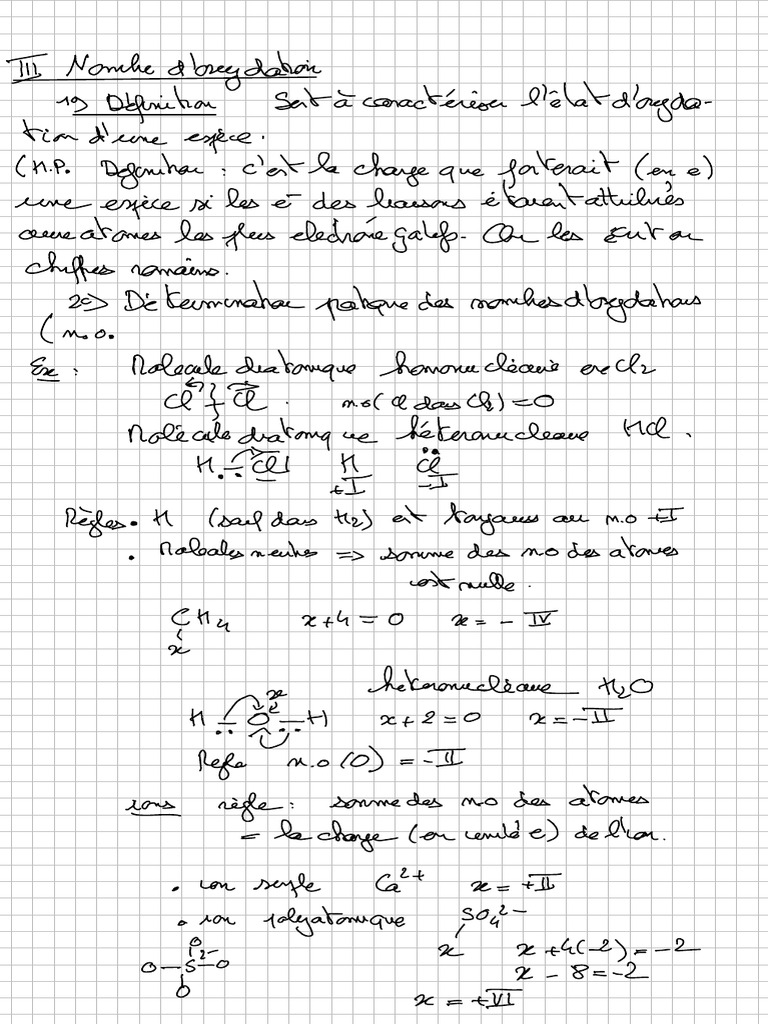 III Nombre d'oxydation
1°) Définition Sert à caractériser l'état d'oxyda-
tion d'une espèce.
(H.P. Définition : c'est la charge que porterait (en e)
une espèce si les e⁻ des liaisons étaient attribués
aux atomes les plus électronégatifs. On les écrit en
chiffres romains.
2°) Détermination pratique des nombres d'oxydations
(n.o.
Ex : Molécule diatomique homonucléaire ex Cl₂
Cl Cl . no(Cl dans Cl₂) = 0
Molécule diatomique hétéronucléaire HCl .
H Cl H Cl
+I -I
Règles • H (sauf dans H₂) est toujours au n.o +I
• Molécules neutres => somme des no des atomes
est nulle.
CH₄ x+4=0 x=-IV
x
hétéronucléaire H₂O
x
H O H x+2=0 x=-II
Règle n.o(O) = -II
ions règle : somme des no des atomes
= la charge (en unité e) de l'ion.
• ion simple Ca²⁺ x=+II
• ion polyatomique SO₄²⁻
x x+4(-2)=-2
O
O-S²⁻-O
O
x-8=-2
x=+VI